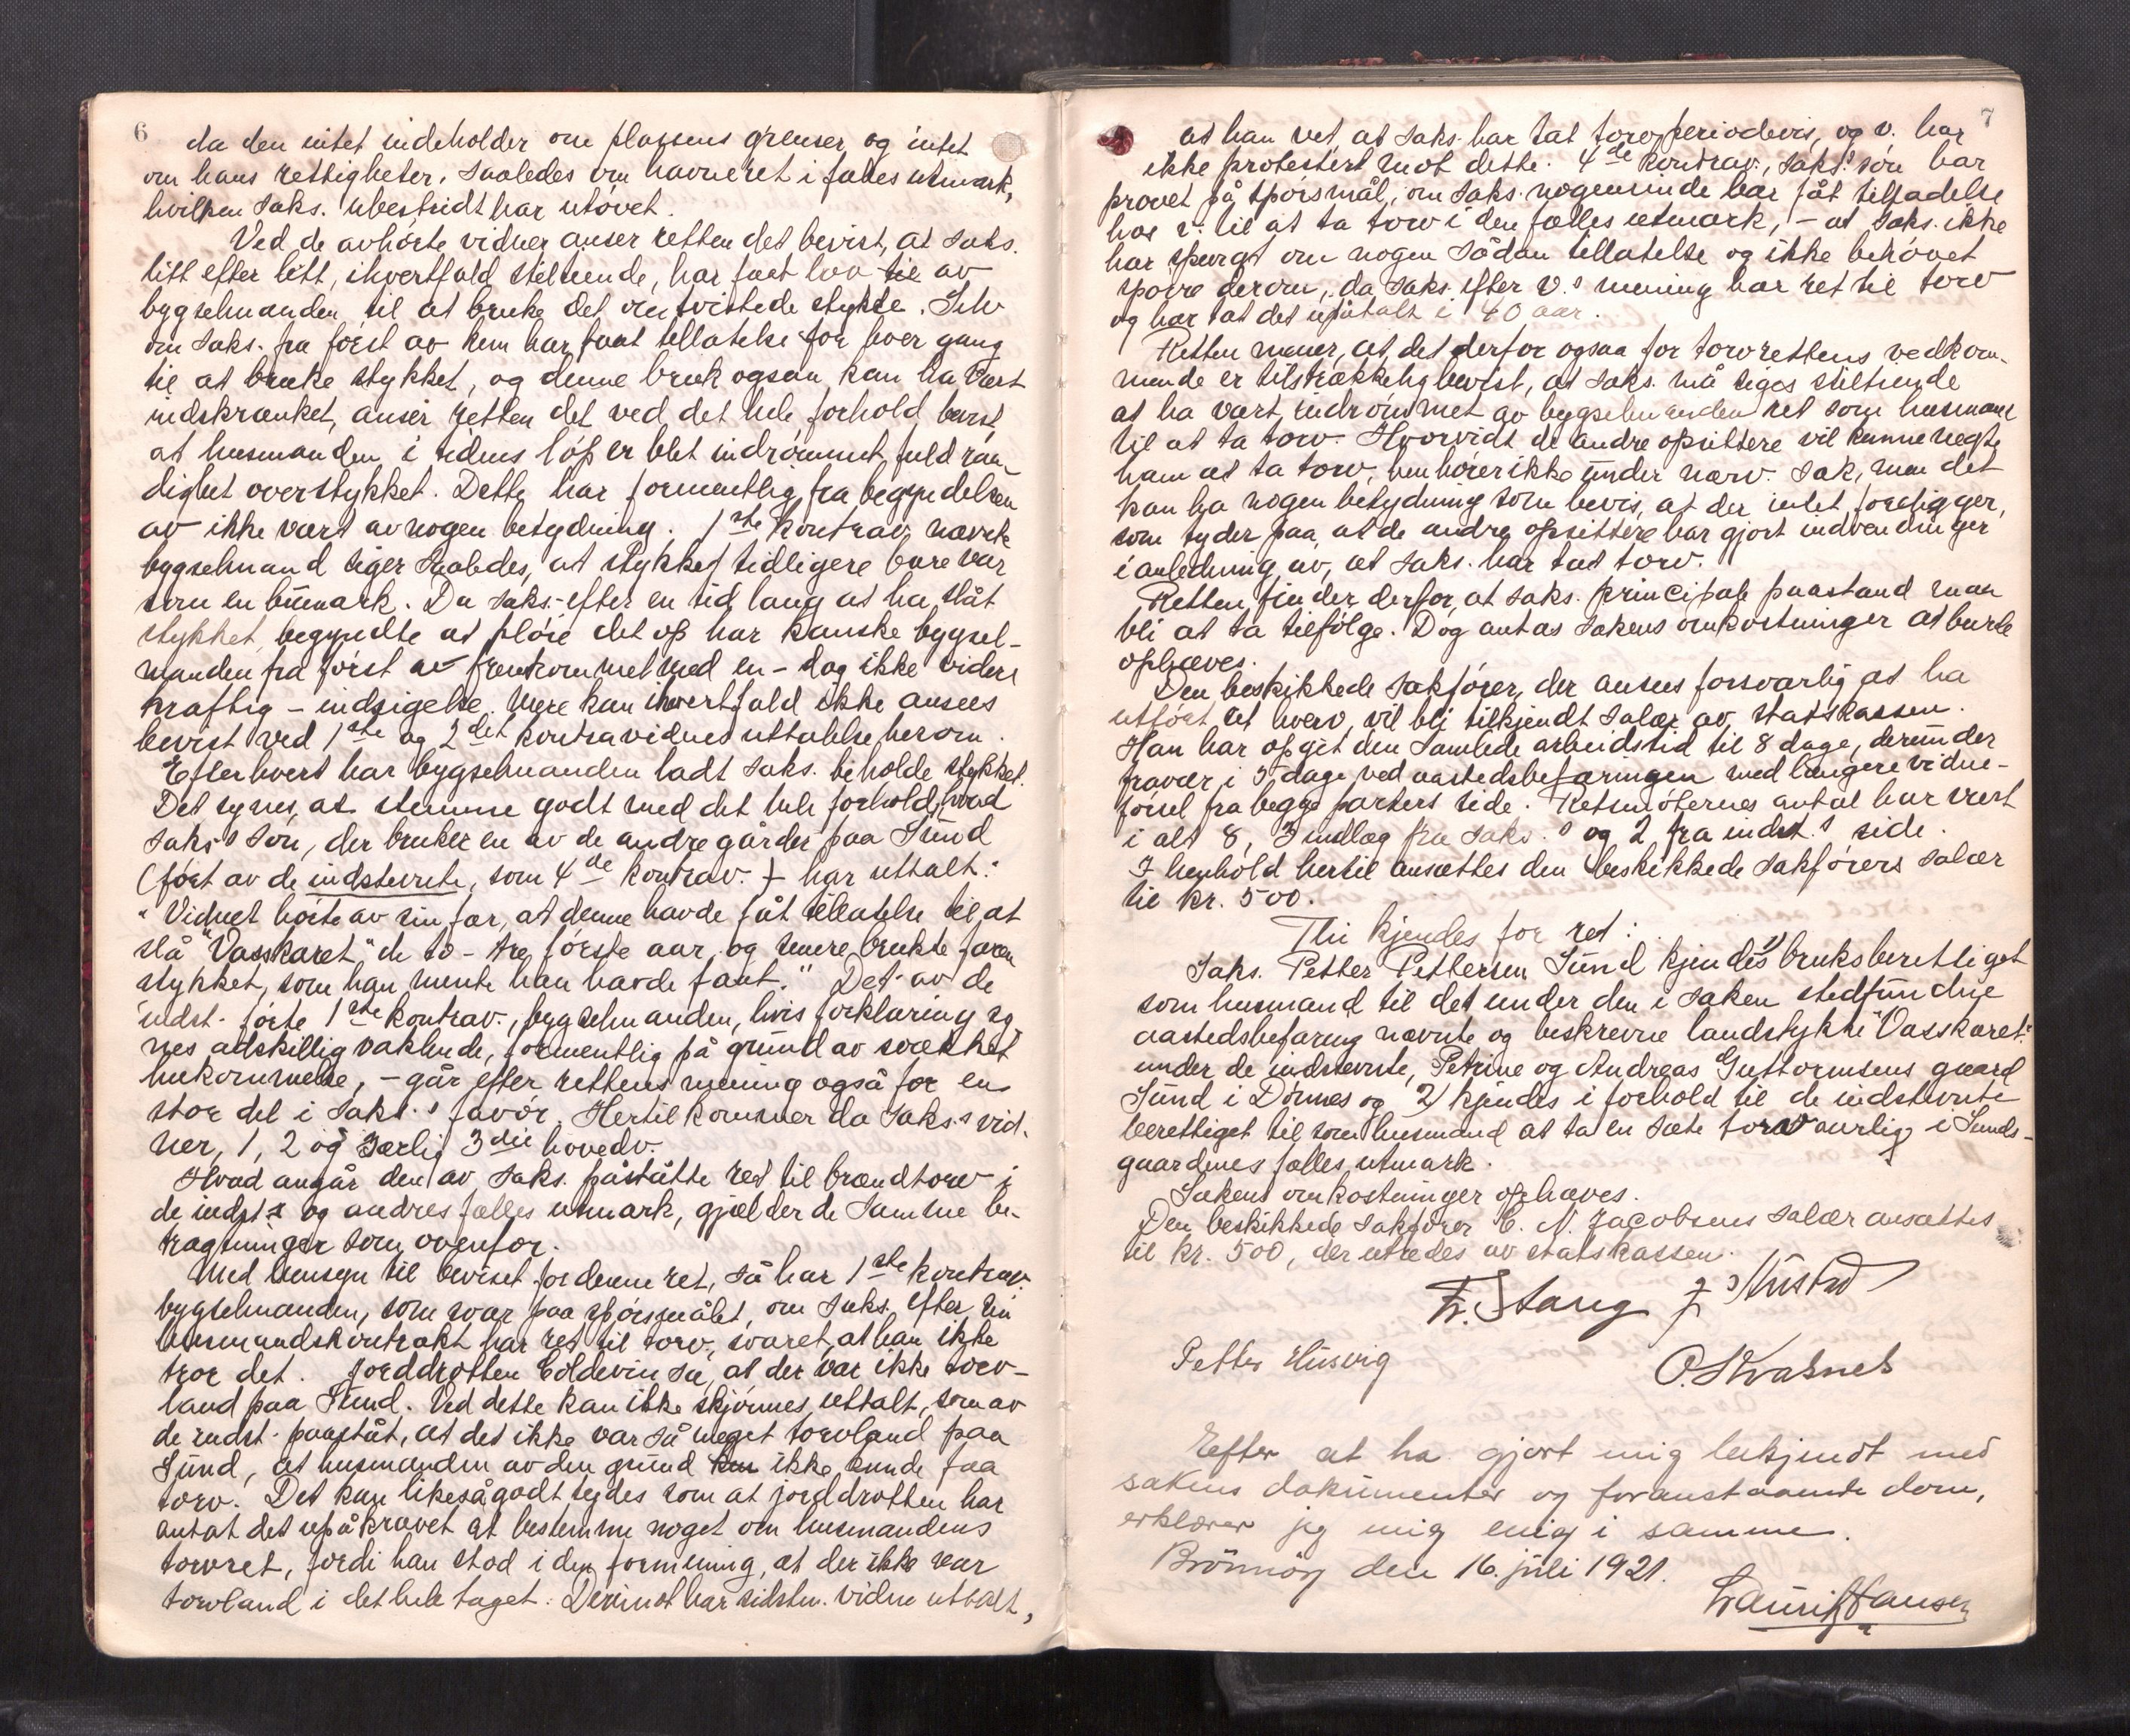 6
da den intet indeholder om plassens grenser og intet
om hans rettigheter, saaledes om havneret i fælles utmark,
hvilken saks. ubestridt har utøvet.
Ved de avhørte vidner anser retten det bevist, at saks.
litt efter litt, ihvertfald stiltiende, har faat lov til av
bygselmanden til at bruke det omtvistede stykke. Selv
om saks. fra først av kun har faat tillatelse for hver gang
til at bruke stykket, og denne bruk ogsaa kan ha vært
indskrænket, anser retten det ved det hele forhold bevist,
at husmanden i tidens løp er blet indrømmet fuld raa-
dighet over stykket. Dette har formentlig fra begyndelsen
av ikke vært av nogen betydning. 1ste kontrav. nævnte
bygselmand siger saaledes, at stykket tidligere bare var
som en bumark. Da saks. efter en tid lang at ha slåt
stykket, begyndte at pløie det op har kanske bygsel-
manden fra først av fremkommet med en - dog ikke videre
kraftig - indsigelse. Mere kan ihvertfald ikke ansees
bevist ved 1ste og 2det kontravidnes uttalelse herom.
Efterhvert har bygselmanden ladt saks. beholde stykket.
Det synes, at stemme godt med det hele forhold, hvad
saks's søn, der bruker en av de andre gårder paa Sund
(ført av de indstevnte, som 4de kontrav.) - har uttalt:
"Vidnet hørte av sin far, at denne havde fåt tillatelse til at
slå "Vasskaret" de to-tre første aar, og senere brukte faren
stykket, som han mente han havde faat." Det av de
indst. førte 1ste kontrav., bygselmanden, hvis forklaring sy-
nes adskillig vaklende, formentlig på grund av svækket
hukommelse, - går efter rettens mening også for en
stor del i saks.s favør. Hertil kommer da saks.s vid-
ner, 1, 2 og særlig 3die hovedv.
Hvad angår den av saks. påståtte ret til brændtorv i
de indst.s og andres fælles utmark, gjælder de samme be-
tragtninger som ovenfor.
Med hensyn til beviset for denne ret, så har 1ste kontrav.
bygselmanden, som svar paa spørsmålet, om saks. efter sin
husmandskontrakt har ret til torv, svaret, at han ikke
tror det. Jorddrotten Coldevin sa, at der var ikke torv-
land paa Sund. Ved dette kan ikke skjønnes uttalt, som av
de indst. paaståt, at det ikke var så meget torvland paa
Sund, at husmanden av den grund ikke kunde faa
torv. Det kan likesågodt tydes som at jorddrotten har
antat det upåkrævet at bestemme noget om husmandens
torvret, fordi han stod i den formening, at der ikke var
torvland i det hele taget. Derimot har sidstn. vidne uttalt,
7
at han vet, at saks. har tat torv periodevis, og v. har
ikke protestert mot dette. 4de kontrav., saks.s søn har
provet på spørsmål, om saks. nogensinde har fåt tilladelse
hos v. til at ta torv i den fælles utmark, - at saks. ikke
har spurgt om nogen sådan tillatelse og ikke behøvet
spørre derom, da saks. efter v.s mening har ret til torv
og har tat det upåtalt i 40 aar.
Retten mener, at det derfor ogsaa for torvrettens vedkom-
mende er tilstrækkelig bevist, at saks. må siges stiltiende
at ha vært indrømmet av bygselmanden ret som husmand
til at ta torv. Hvorvidt de andre opsittere vil kunne negte
ham at ta torv, henhører ikke under nærv. sak, men det
kan ha nogen betydning som bevis, at der intet foreligger,
som tyder paa at de andre opsittere har gjort indvendinger
i anledning av, at saks. har tat torv.
Retten finder derfor, at saks. principale paastand maa
bli at ta tilfølge. Dog antas sakens omkostninger at burde
ophæves.
Den beskikkede sakfører, der ansees forsvarlig at ha
utført sit hverv, vil bli tilkjendt salær av statskassen.
Han har opgit den samlede arbeidstid til 8 dage, derunder
fravær i 3 dage ved aastedsbefaringen med længere vidne-
førsel fra begge parters side. Retsmøternes antal har vært
i alt 8, 3 indlæg fra saks.s og 2 fra indst.s side.
I henhold hertil ansættes den beskikkede sakførers salær
til kr. 500.
Thi kjendes for ret:
Saks. Petter Pettersen Sund kjendes 1) bruksberettiget
som husmand til det under den i saken stedfundne
aastedsbefaring nævnte og beskrevne landstykke "Vasskaret"
under de indstevnte, Petrine og Andreas Guttormsens gaard
Sund i Dønnes og 2) kjendes i forhold til de indstevnte
berettiget til som husmand at ta en sæte torv aarlig i Sunds-
gaardenes fælles utmark.
Sakens omkostninger ophæves.
Den beskikkede sakfører C. N. Jacobsens salær ansættes
til kr. 500, der utredes av statskassen.
Fr. Stang J. Mustad
Petter Husvig
O. Kvasnes
Efter at ha gjort mig bekjendt med
sakens dokumenter og foranstaaende dom,
erklærer jeg mig enig i samme.
Brönnöy den 16. juli 1921.
Laurits Hansen